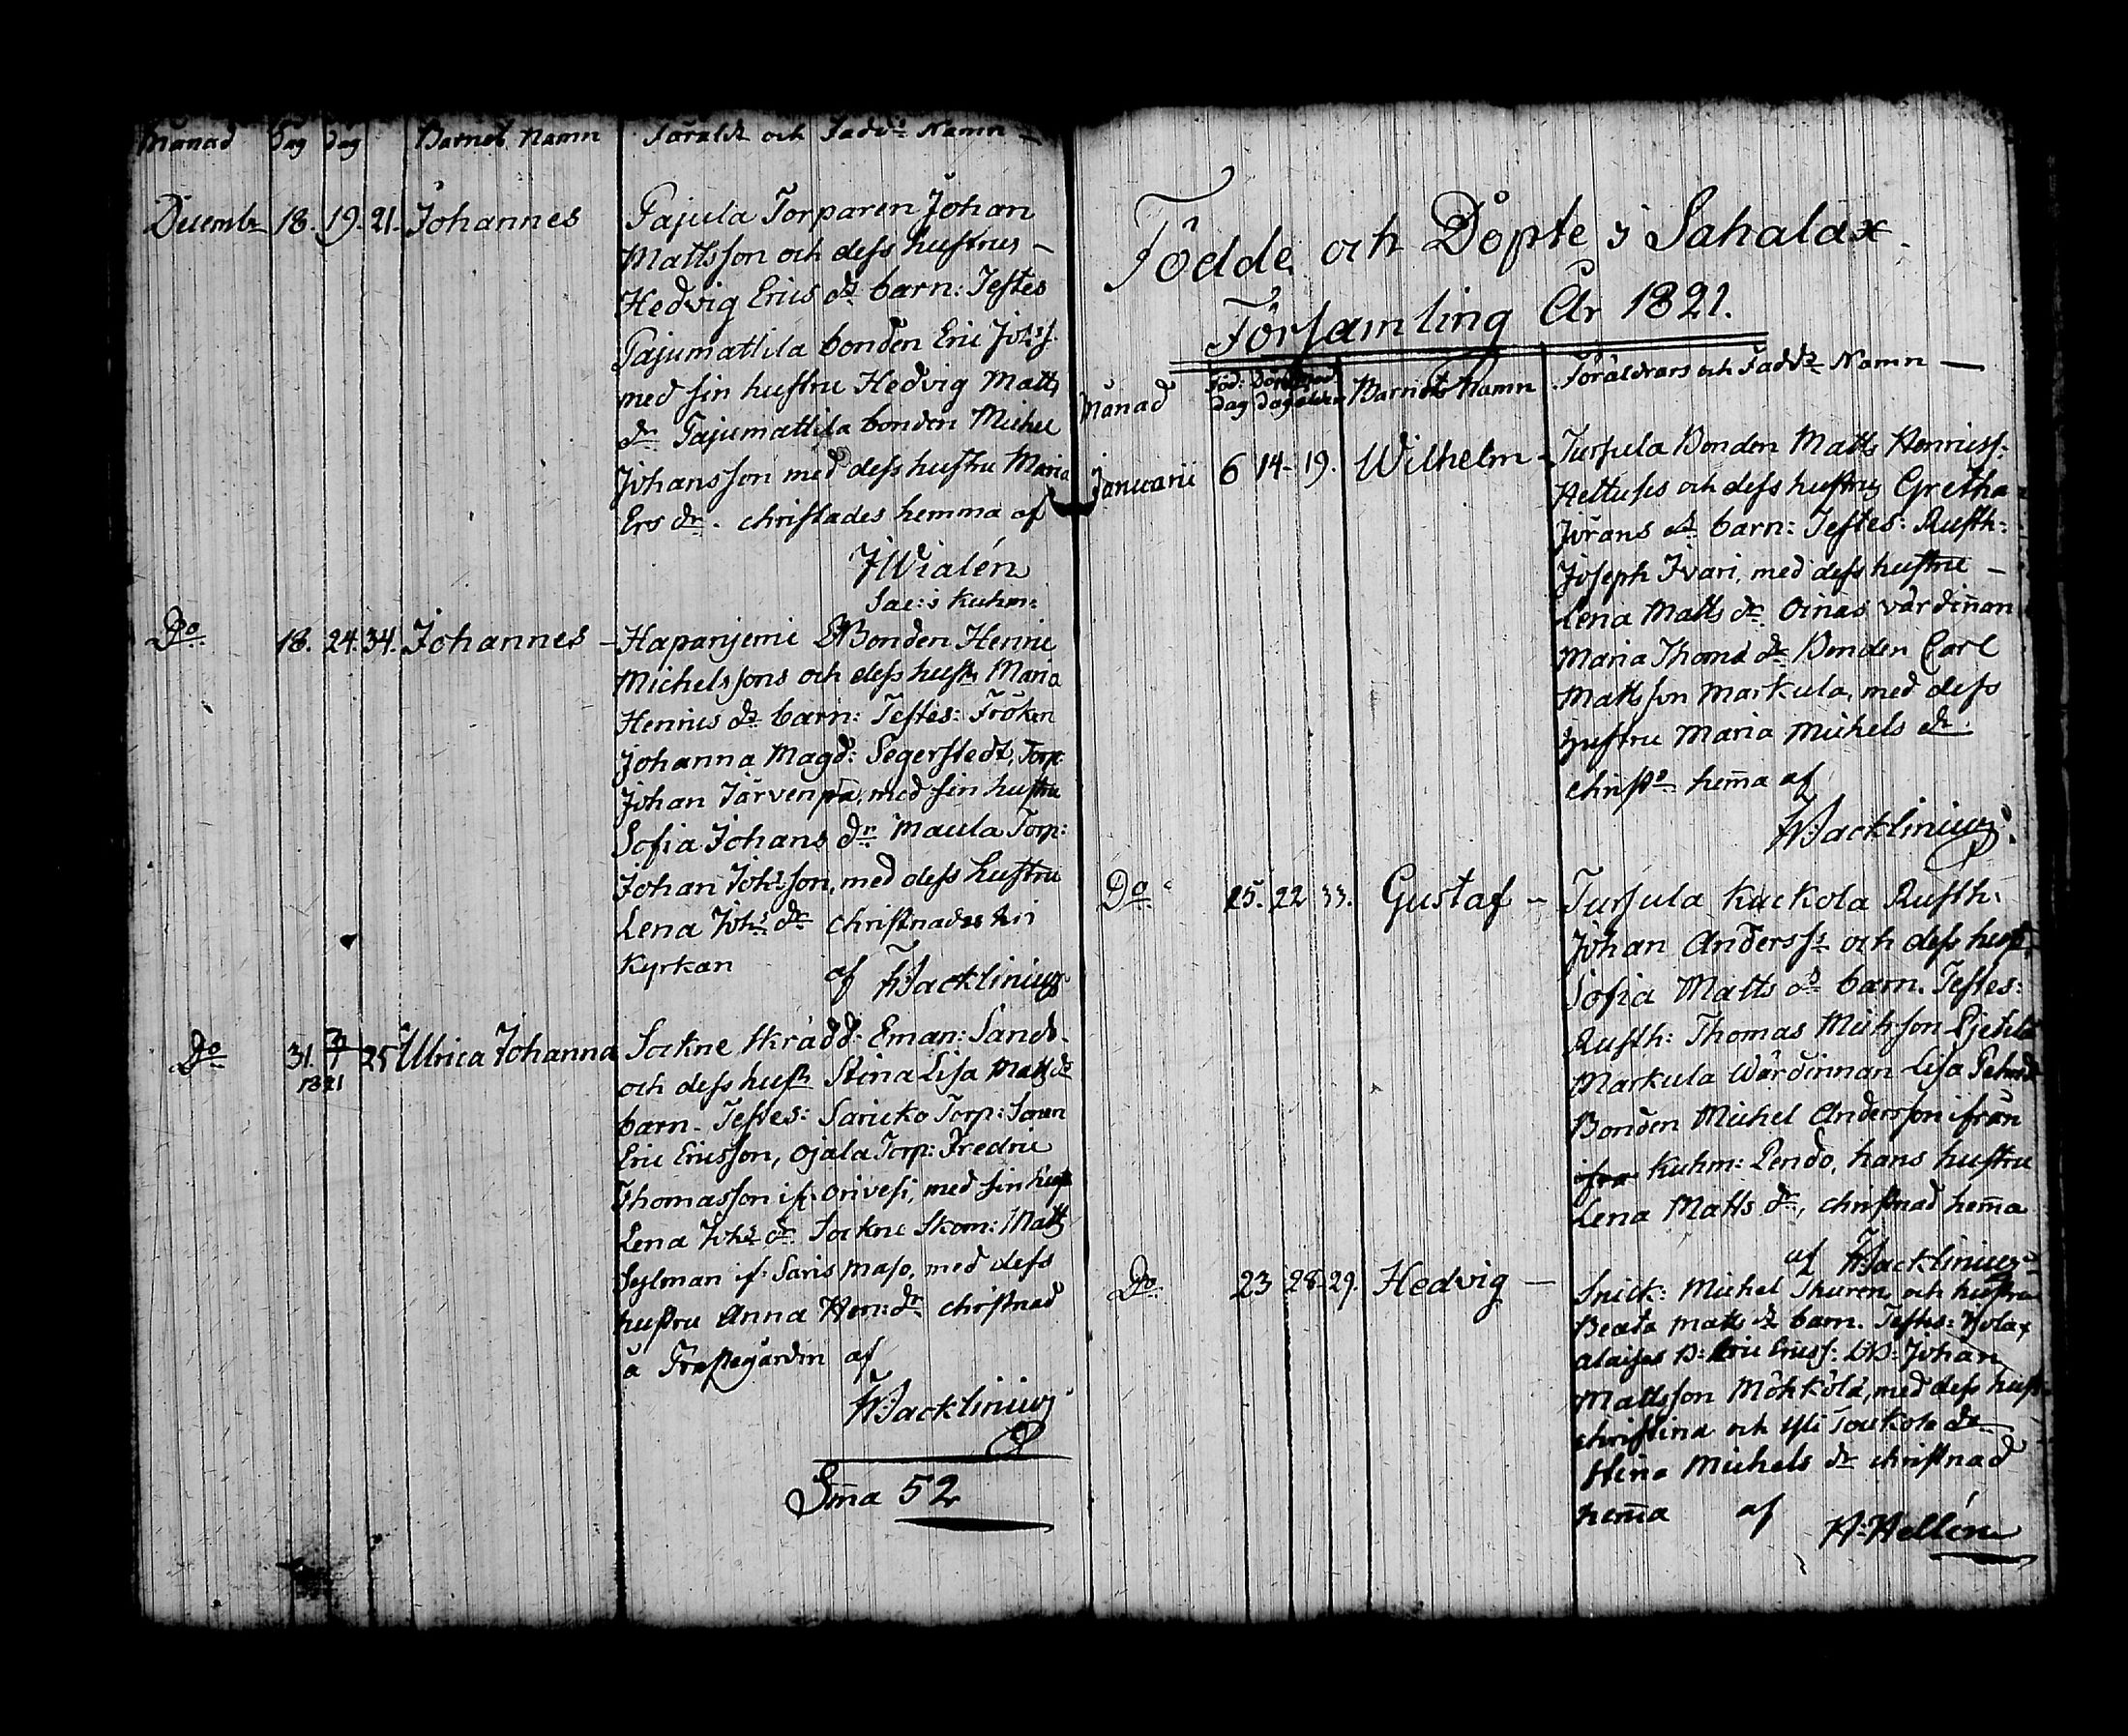 Månad Dag Dag Barnets Namn Föräld: och Fadd:s Namn
Decembr 18. 19. 21. Johannes Pajula Torparen Johan
Mattsson och dess hustrus
Hedvig Erics dr barn: Testes
Pajumattila bonden Eric Johss.
med sin hustru Hedvig Matts
dr Pajumattila bonden Michel
Johansson med dess hustru Maria
Ers dr. christades hemma af
J Wialén
Sac: i Kuhm:
Do 18. 24. 34. Johannes – Hapanjemi Bonden Henric
Michelssons och dess hustr Maria
Henrics dr barn: Testes: Fröken
Johanna Magd: Segerstedt, Torp:
Johan Järvenpää, med sin hustru
Sofia Johans dr Maula Torp:
Johan Johsson, med dess hustru
Lena Johs dr christnades i
Kyrkan af F Wacklinius
Do 31. 25 Ulrica Johanna Sockne Skrädd: Eman: Sand
1821
och dess hustr Stina Lisa Matts dr
barn. Testes: Saricko Torp: Sonen
Eric Ericsson, Ojala Torp: Fredric
Thomasson if. Orivesi, med sin hustr
Lena Johs dr Sockne Skom: Matts
Sylman if: Saris maso, med dess
hustru Anna Hen: dr christnad
å Prestegården af
F Wacklinius
S:ma 52
Födde och Döpte i Sahalax
Församling År 1821.
Månad Föd: dag Döp dag Mod ålder Barnets Namn Föräldrars och Faddrs Namn —
Januarii 6 14 – 19. Wilhelm – Tursula Bonden Matts Henricss.
Heltuses och dess hustrus Gretha
Jörans dr barn: Testes: Rusth:
Joseph Ivari, med dess hustru –
Lena Matts dr Oinas värdinnan
Maria Thoms dr Bonden Carl
Mattsson Markula, med dess
hustru Maria Michels dr
christd hemma af
F Wacklinius.
Do 15. 22 33. Gustaf – Tursula Kackola Rusth:
Johan Anderss: och dess hustr
Sofia Matts dr barn. Testes:
Rusth: Thomas Michsson
Markula Wärdinnan Lisa
Bonden Michel Andersson ifrån
Kuhm: Pendo, hans hustru
Lena Matts dr, christnad hemma
af F Wacklinius
Do 23 28 – 29. Hedvig – Snick: Michel Thuren och hustru
Beata Matts dr barn. Testes:
B: Eric Ericss: Johan
Mattsson Möhkölä, med dess hustr
Christina och Yli Toukola dr
Stina Michels dr christnad
hemma af H: Hellén